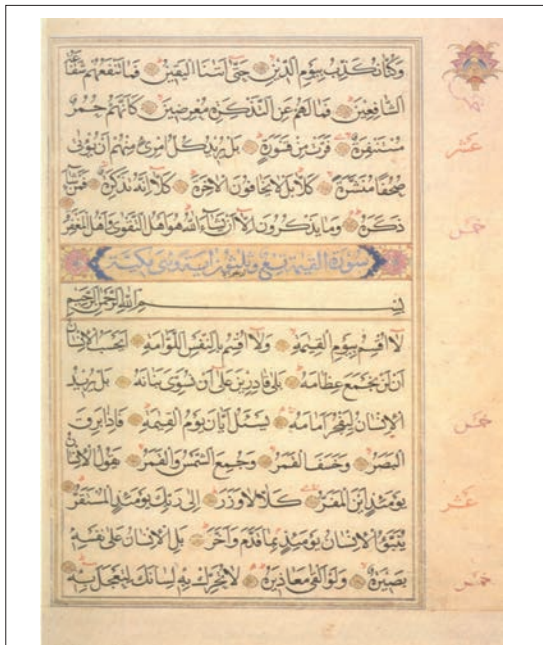 وَكُنَّا نُكَذِّبُ بِيَوْمِ الدِّينِ حَتَّى أَتَنَا الْيَقِينُ فَمَا تَنْفَعُهُمْ شَفَاعَةُ
الشَّافِعِينَ فَمَا لَهُمْ عَنِ التَّذْكِرَةِ مُعْرِضِينَ كَأَنَّهُمْ حُمُرٌ
مُسْتَنْفِرَةٌ فَرَّتْ مِنْ قَسْوَرَةٍ بَلْ يُرِيدُ كُلُّ امْرِئٍ مِنْهُمْ أَنْ يُؤْتَى
صُحُفًا مُنَشَّرَةً كَلَّا بَلْ لَا يَخَافُونَ الْآخِرَةَ كَلَّا إِنَّهُ تَذْكِرَةٌ فَمَنْ شَاءَ
ذَكَرَهُ وَمَا يَذْكُرُونَ إِلَّا أَنْ يَشَاءَ اللَّهُ هُوَ أَهْلُ التَّقْوَى وَأَهْلُ الْمَغْفِرَةِ
سورة القيمة تسع وثلثون آية وهي مكية
بِسْمِ اللَّهِ الرَّحْمَنِ الرَّحِيمِ
لَا أُقْسِمُ بِيَوْمِ الْقِيَمَةِ وَلَا أُقْسِمُ بِالنَّفْسِ اللَّوَّامَةِ أَيَحْسَبُ الْإِنْسَانُ
أَلَّنْ نَجْمَعَ عِظَامَهُ بَلَى قَادِرِينَ عَلَى أَنْ نُسَوِّيَ بَنَانَهُ بَلْ يُرِيدُ
الْإِنْسَانُ لِيَفْجُرَ أَمَامَهُ يَسْئَلُ أَيَّانَ يَوْمُ الْقِيَمَةِ فَإِذَا بَرِقَ
الْبَصَرُ وَخَسَفَ الْقَمَرُ وَجُمِعَ الشَّمْسُ وَالْقَمَرُ يَقُولُ الْإِنْسَانُ
يَوْمَئِذٍ أَيْنَ الْمَفَرُّ كَلَّا لَا وَزَرَ إِلَى رَبِّكَ يَوْمَئِذٍ الْمُسْتَقَرُّ
يُنَبَّؤُا الْإِنْسَانُ يَوْمَئِذٍ بِمَا قَدَّمَ وَأَخَّرَ بَلِ الْإِنْسَانُ عَلَى نَفْسِهِ
بَصِيرَةٌ وَلَوْ أَلْقَى مَعَاذِيرَهُ لَا تُحَرِّكْ بِهِ لِسَانَكَ لِتَعْجَلَ بِهِ
عشر
خمس
خمس
عشر
خمس